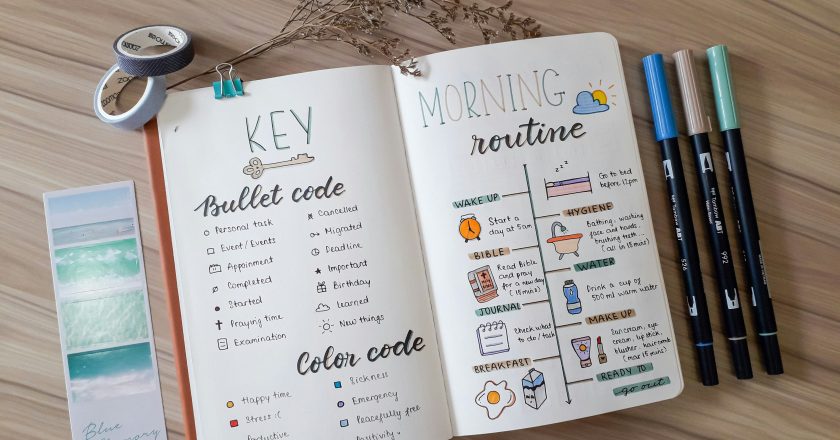 KEY
Bullet code
Personal task
Event / Events
Appoinment
Completed
Started
Praying time
Examination
Cancelled
Migrated
Deadline
Important
Birthday
Learned
New things
Color code
Happy time
Stress :(
Productive
Sickness
Emergency
Peacefully free
Positivity
MORNING
routine
zzz
Go to bed
before 12pm
WAKE UP
Start a
day at 5am
HYGIENE
Bathing, washing
face and hands,
brushing teeth...
(all in 15 mins)
BIBLE
Read Bible
and pray
for a new day
(15 mins)
WATER
Drink a cup of
500 ml warm water
JOURNAL
Check what
to do / task
MAKE UP
Suncream, eye
cream, lipstick,
blusher, haircomb
(max 15 mins)
BREAKFAST
READY TO
go out
Blue
Tombow ABT
526
Tombow ABT
992